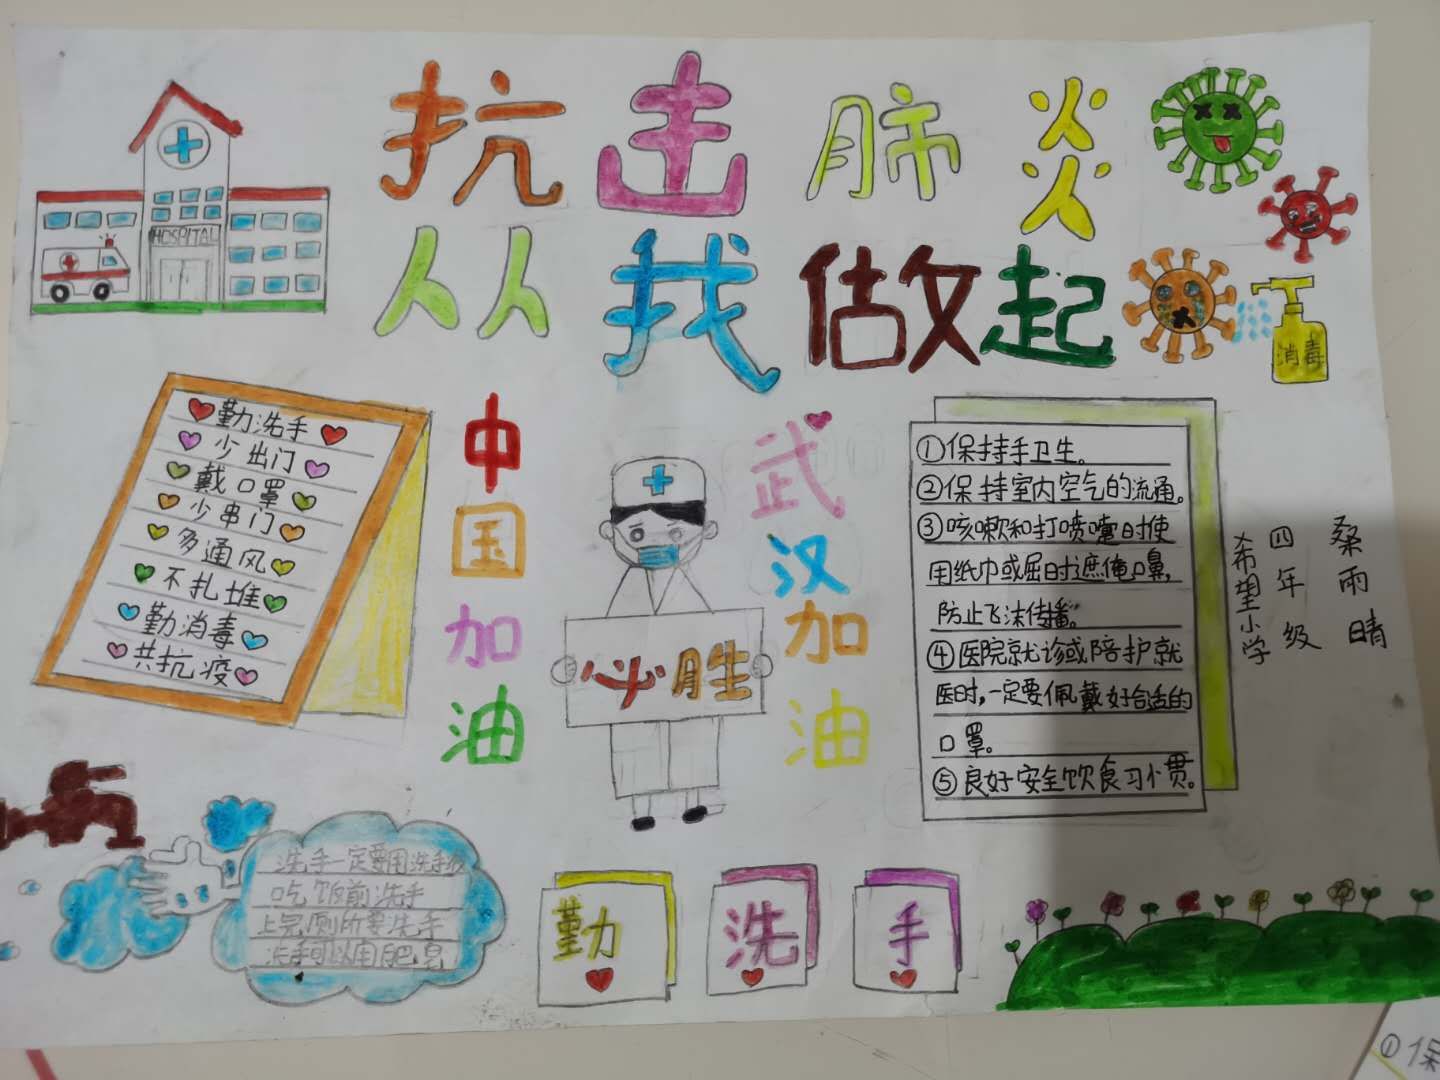 抗击肺炎
从我做起
HOSPITAL
消毒
勤洗手
少出门
戴口罩
少串门
多通风
不扎堆
勤消毒
共抗疫
中国加油
必胜
武汉加油
①保持手卫生。
②保持室内空气的流通。
③咳嗽和打喷嚏时使
用纸巾或屈肘遮掩口鼻,
防止飞沫传播。
④医院就诊或陪护就
医时,一定要佩戴好合适的
口罩。
⑤良好安全饮食习惯。
希望小学
四年级
桑雨晴
洗手一定要用洗手液
吃饭前洗手
上完厕所要洗手
洗手可以用肥皂
勤洗手
①保